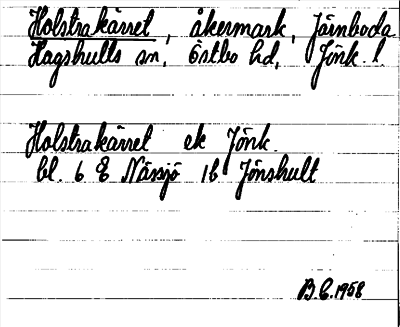 Holstrakärret, åkermark, Järnboda
Hagshults sn, Östbo hd, Jönk. l.
Holstrakärret ek Jönk.
bl. 6 E Nässjö 1b Jönshult
B.E. 1958